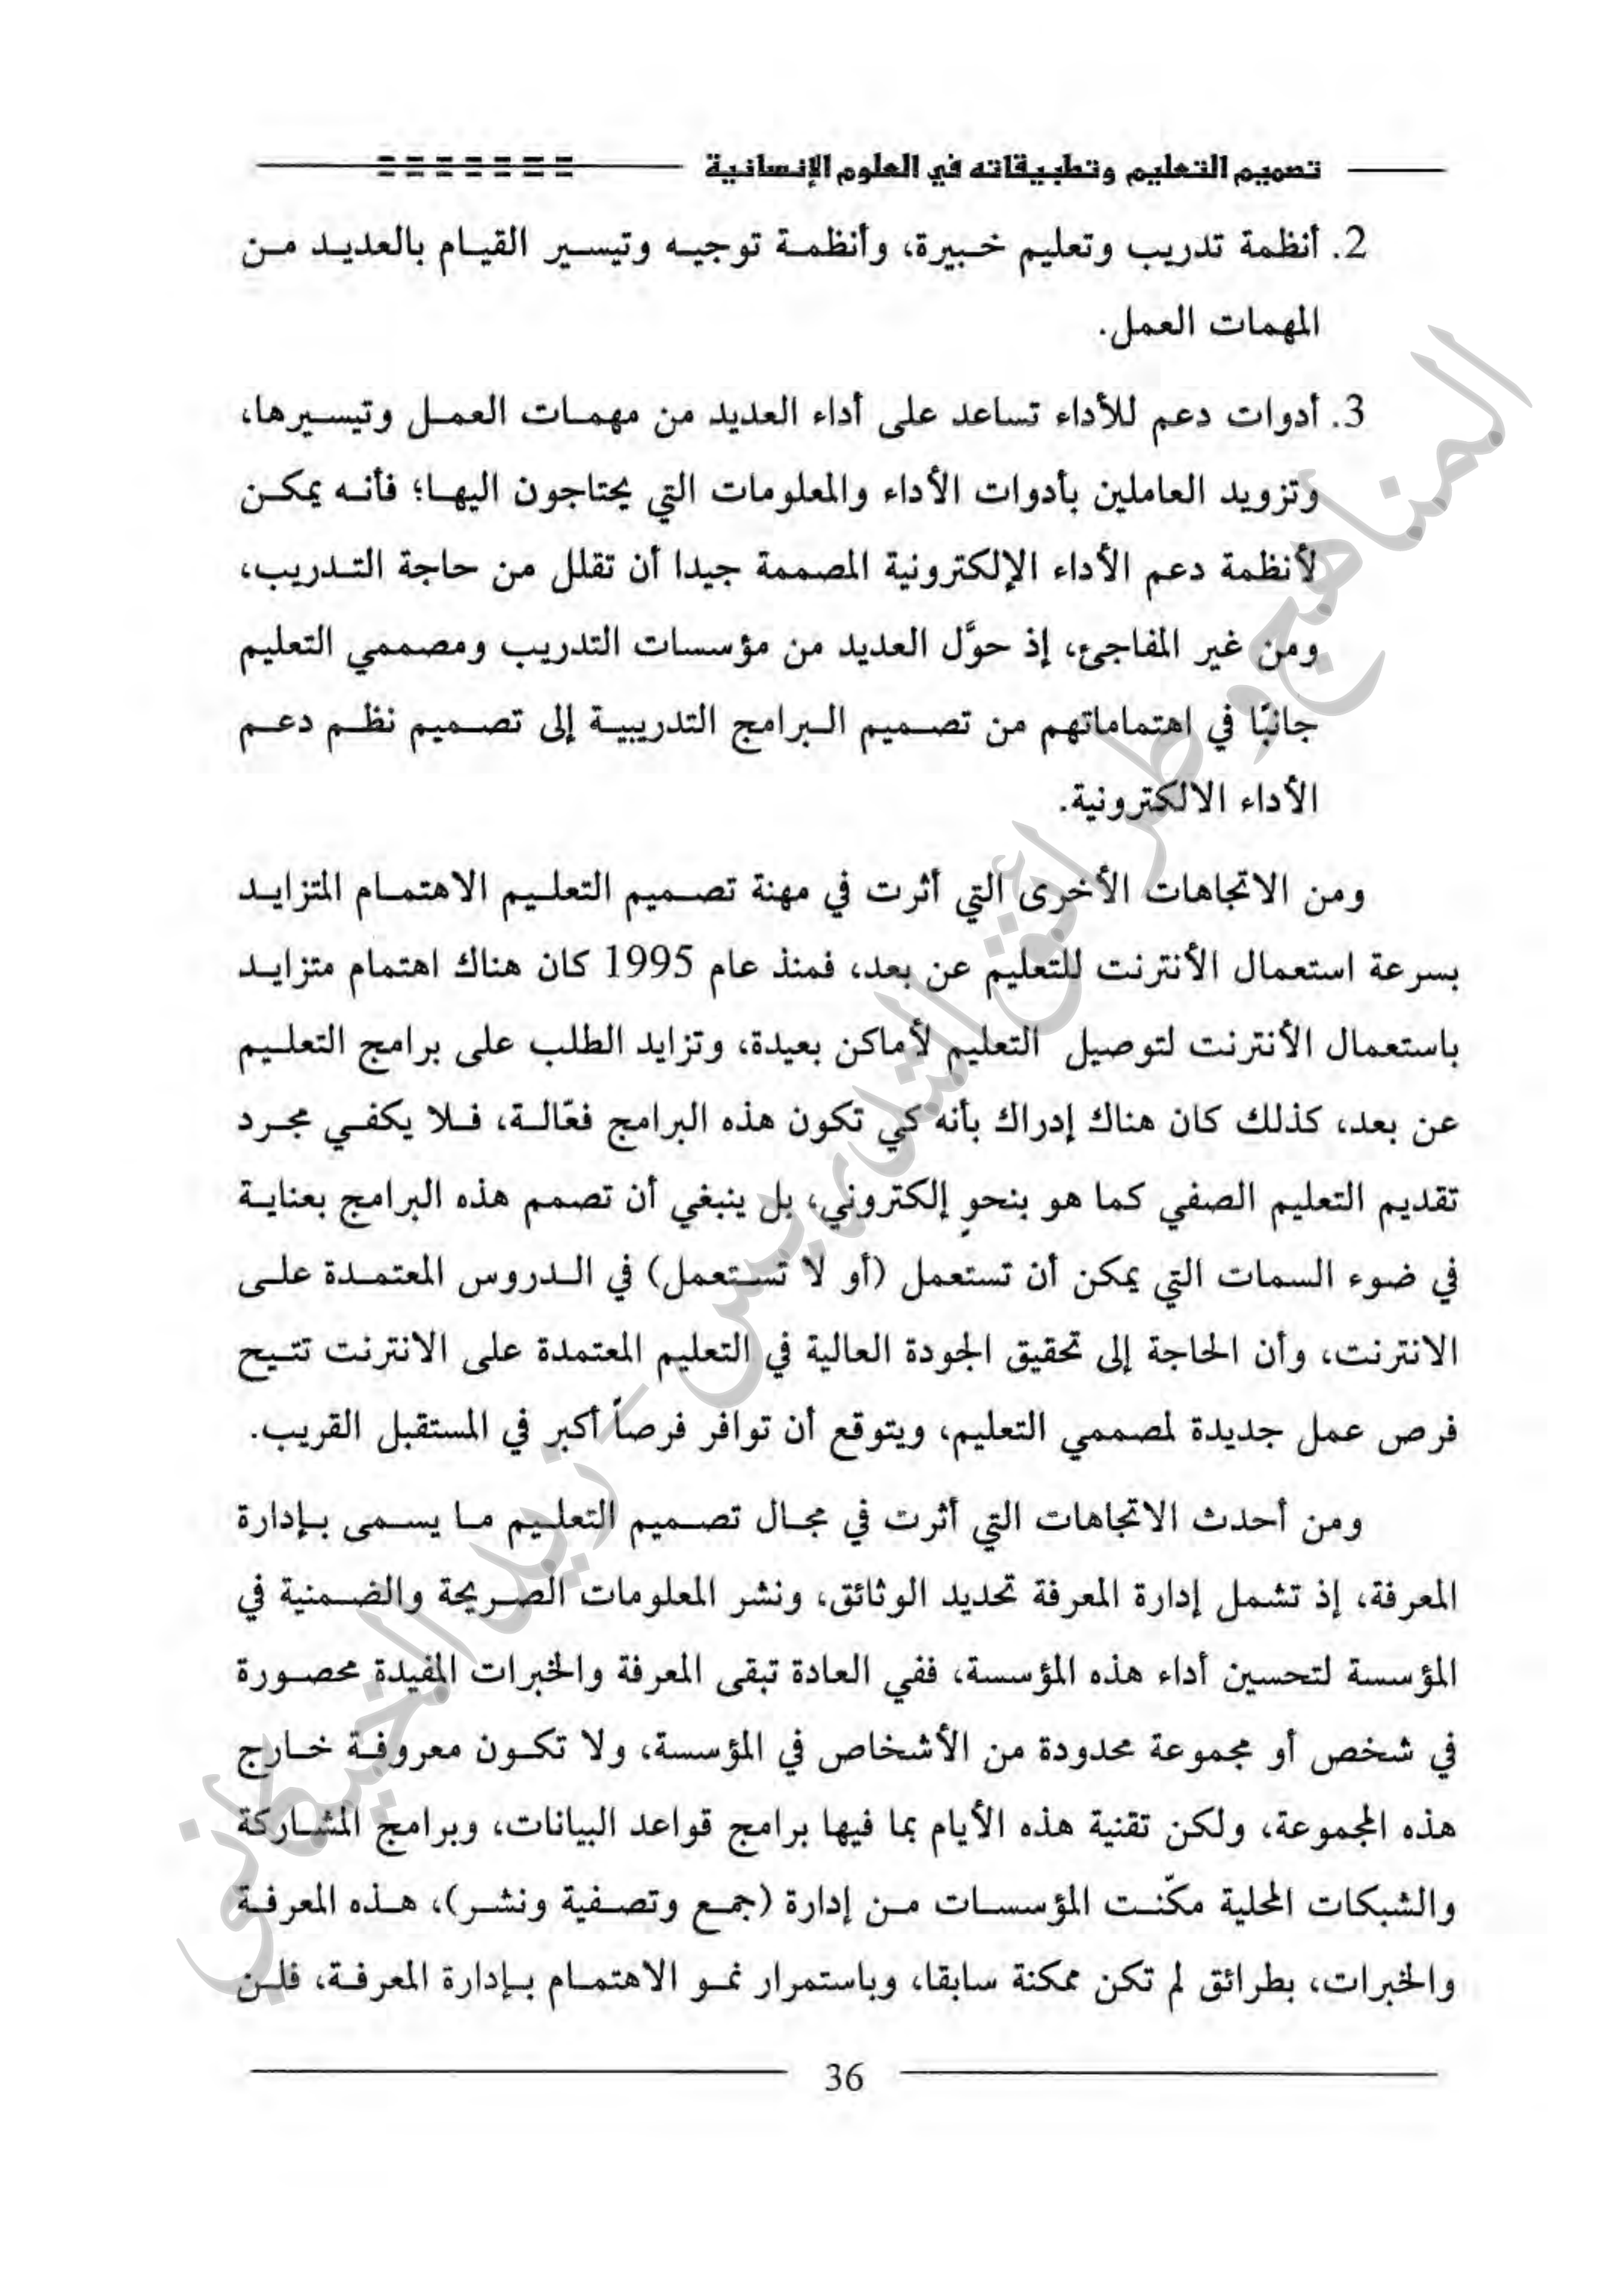 تصميم التعليم وتطبيقاته في العلوم الإنسانية
2. أنظمة تدريب وتعليم خبيرة، وأنظمة توجيه وتيسير القيام بالعديد من
المهمات العمل.
3. أدوات دعم للأداء تساعد على أداء العديد من مهمات العمل وتيسيرها،
وتزويد العاملين بأدوات الأداء والمعلومات التي يحتاجون اليها؛ فأنه يمكن
لأنظمة دعم الأداء الإلكترونية المصممة جيدا أن تقلل من حاجة التدريب،
ومن غير المفاجئ، إذ حوَّل العديد من مؤسسات التدريب ومصممي التعليم
جانبًا في اهتماماتهم من تصميم البرامج التدريبية إلى تصميم نظم دعم
الأداء الالكترونية.
ومن الاتجاهات الأخرى التي أثرت في مهنة تصميم التعليم الاهتمام المتزايد
بسرعة استعمال الأنترنت للتعليم عن بعد، فمنذ عام 1995 كان هناك اهتمام متزايد
باستعمال الأنترنت لتوصيل التعليم لأماكن بعيدة، وتزايد الطلب على برامج التعليم
عن بعد، كذلك كان هناك إدراك بأنه كي تكون هذه البرامج فعّالة، فلا يكفي مجرد
تقديم التعليم الصفي كما هو بنحوٍ إلكتروني، بل ينبغي أن تصمم هذه البرامج بعناية
في ضوء السمات التي يمكن أن تستعمل (أو لا تستعمل) في الدروس المعتمدة على
الانترنت، وأن الحاجة إلى تحقيق الجودة العالية في التعليم المعتمدة على الانترنت تتيح
فرص عمل جديدة لمصممي التعليم، ويتوقع أن توافر فرصاً أكبر في المستقبل القريب.
ومن أحدث الاتجاهات التي أثرت في مجال تصميم التعليم ما يسمى بإدارة
المعرفة، إذ تشمل إدارة المعرفة تحديد الوثائق، ونشر المعلومات الصريحة والضمنية في
المؤسسة لتحسين أداء هذه المؤسسة، ففي العادة تبقى المعرفة والخبرات المفيدة محصورة
في شخص أو مجموعة محدودة من الأشخاص في المؤسسة، ولا تكون معروفة خارج
هذه المجموعة، ولكن تقنية هذه الأيام بما فيها برامج قواعد البيانات، وبرامج المشاركة
والشبكات المحلية مكّنت المؤسسات من إدارة (جمع وتصفية ونشر)، هذه المعرفة
والخبرات، بطرائق لم تكن ممكنة سابقا، وباستمرار نمو الاهتمام بإدارة المعرفة، فلن
36
المناهج وطرائق التدريس - زيد الخيكاني